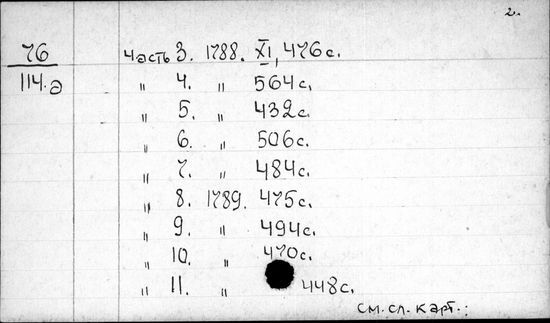 2.
76 часть 3. 1788. XI, 476 с.
114.а " 4. " 564 с.
" 5. " 432 с.
" 6. " 506 с.
" 7. " 484 с.
" 8. 1789. 475 с.
" 9. " 494 с.
" 10. " 470 с.
" 11. " 448 с.
см. сл. карт.: